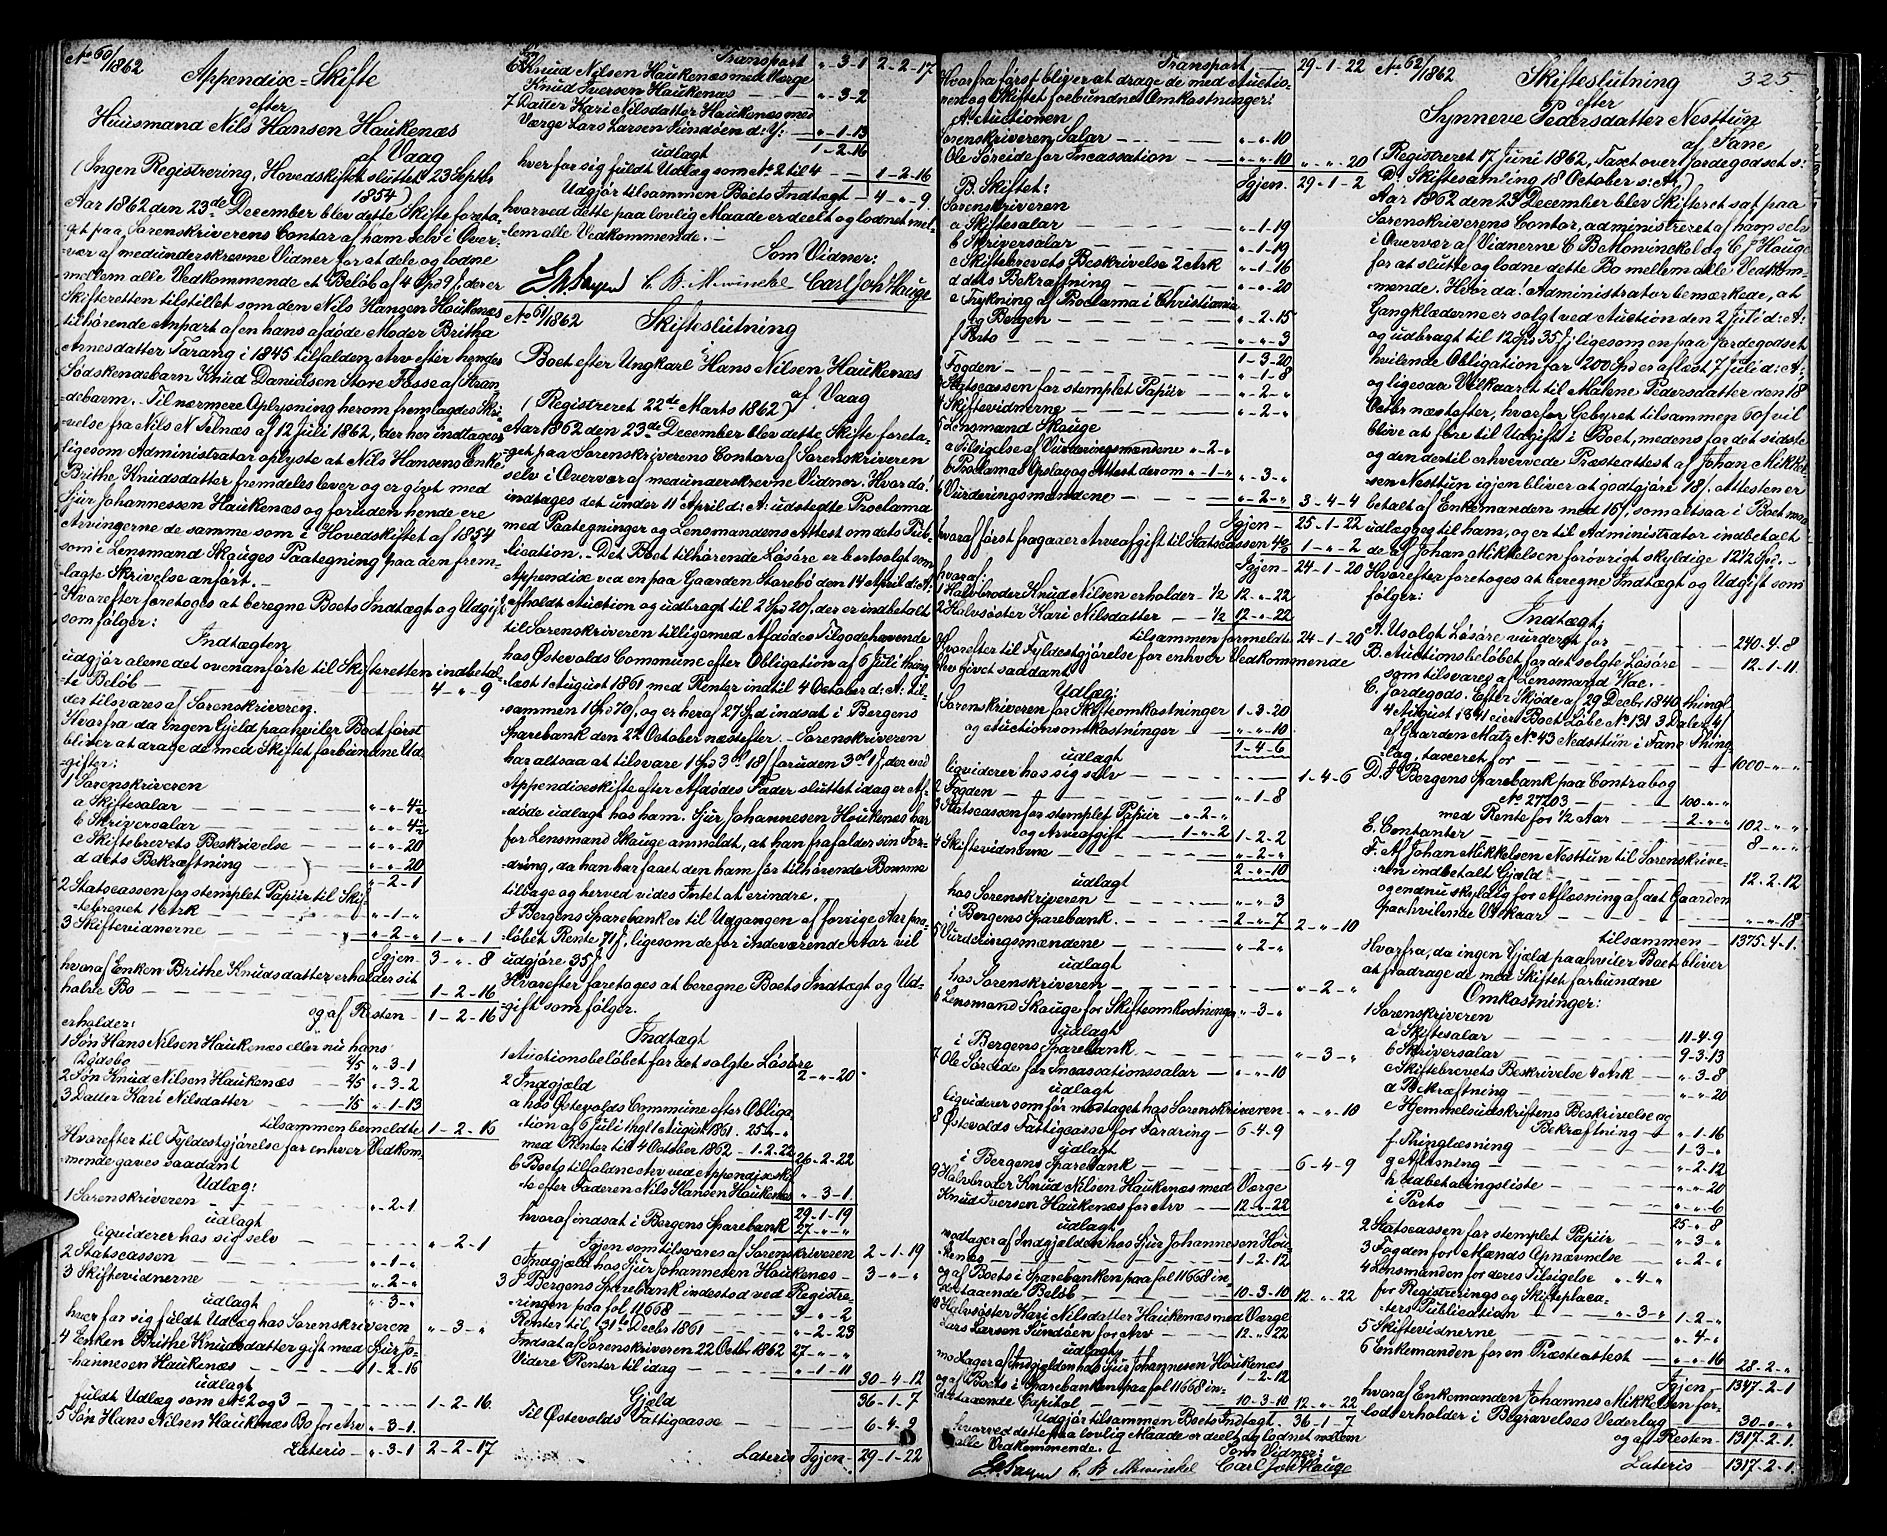 No 60/1862
Appendix-Skifte
efter
Huusmand Nils Hansen Haukenæs
af Vaag
(Ingen Registrering, Hovedskiftet sluttet 23 Septbr
1854)
Aar 1862 den 23de December blev dette Skifte foreta-
get paa Sorenskriverens Contor af ham selv i Over-
vær af medunderskrevne Vidner for at dele og lodne
mellem alle Vedkommende et Beløb af 4 Spd 9 s, der er
Skifteretten tilstillet som den Nils Hansen Haukenæs
tilhørende Anpart af en hans afdøde Moder Britha
Annesdatter Tarang i 1845 tilfalden Arv efter hendes
Sødskendebarn Knud Danielsen Store Fosse af Stran-
debarm. Til nærmere Oplysning herom fremlagdes Skri-
velse fra Nils N Telnæs af 12 Juli 1862, der her indtages
ligesom Administrator oplyste at Nils Hansens Enke
Brithe Knudsdatter fremdeles lever og er givt med
Sjur Johannessen Haukenæs og foruden hende ere
Arvingerne de samme som i Hovedskiftet af 1854
som i Lensmand Skauges Paategning paa den frem-
lagte Skrivelse anført. –
Hvorefter foretoges at beregne Boets Indtægt og Udgift
som følger:
Indtægten
udgjør alene det ovenanførte til Skifteretten indbetal-
te Beløb 4 - " - 9
der tilsvares af Sorenskriveren.
Hvorfra da ingen Gjeld paahviler Boet først
bliver at drage de med Skiftet forbundne Ud-
gifter:
1 Sorenskriveren
a Skiftesalar " - " - 4½
b Skriversalar " - " - 4½
c Skiftebrevets Beskrivelse " - " - 20
d dets Bekræftning " - " - 20
" - 2 - 1
2 Statscassen for stemplet Papiir til Skif-
tebrevet 1 Ark " - 1 - "
3 Skiftevidnerne " - 2 - " 1 - " - 1
Igjen 3 - " - 8
hvoraf Enken Brithe Knudsdatter erholder sit
halve Bo 1 - 2 - 16
og af Resten 1 - 2 - 16
erholder:
1 Søn Hans Nilsen Haukenæs eller nu hans
Dødsbo 2/5 " - 3 - 1
2 Søn Knud Nilsen Haukenæs 2/5 " - 3 - 2
3 Datter Kari Nilsdatter 1/5 " - 1 - 13
tilsammen bemeldte 1 - 2 - 16
Hvorefter til Fyldestgjørelse for enhver Vedkom-
mende gaves saadant
Udlæg:
1 Sorenskriveren " - 2 - 1
udlagt
liqviderer hos sig selv " - 2 - 1
2 Statscassen " - 1 - "
3 Skiftevidnerne " - 2 - "
udlagt " - 3 - "
hver for sig fuldt Udlæg hos Sorenskriveren " - 3 - "
4 Enken Brithe Knudsdatter gift med Sjur Jo-
hannesen Haukenæs 1 - 2 - 16
udlagt
fuldt Udlæg som No 2 og 3 1 - 2 - 16
5 Søn Hans Nilsen Haukenæs Bo for Arv " - 3 - 1
Lateris " - 3 - 1 2 - 2 - 17
Transport " - 3 - 1 2 - 2 - 17
6 Søn Knud Nilsen Haukenæs med Værge
Knud Iversen Haukenæs " - 3 - 2
7 Datter Kari Nilsdatter Haukenæs med
Værge Lars Larsen Sundøen d: Y: " - 1 - 13
udlagt 1 - 2 - 16
hver for sig fuldt Udlæg som No 2 til 4 1 - 2 - 16
Udgjør tilsammen Boets Indtægt 4 - " - 9
hvorved dette paa lovlig Maade er deelt og lodnet mel-
lem alle Vedkommende. –
Som Vidner:
C. B. Mowinckel Carl Joh Hauge
No 61/1862
Skifteslutning
i
Boet efter Ungkarl Hans Nilsen Haukenæs
af Vaag
Registreret 22de Marts 1862)
Aar 1862 den 23de December blev dette Skifte foreta-
get paa Sorenskriverens Contor af Sorenskriveren
selv i Overvær af medunderskrevne Vidner. Hvor da:
indtages det under 11 April d: A: udstedte Proclama
med Paategninger og Lensmandens Attest om dets Pub-
lication. Det Boet tilhørende Løsøre er bortsolgt som
Appendix ved en paa Gaarden Storebø den 14 April d: A:
afholdt Auction og udbragt til 2 Spd 20 s, der er indbetalt
til Sorenskriveren tilligemed Afdødes Tilgodehavende
hos Østevolds Commune efter Obligation af 6 Juli thing-
læst 1 August 1861 med Renter indtil 4 October d: A: til-
sammen 1 Spd 70 s, og er heraf 27 Spd indsat i Bergens
Sparebank den 22 October næstefter. Sorenskriveren
har altsaa at tilsvare 1 Spd 3 ort 18 s foruden 3 ort 1 s, der ved
Appendixskifte efter Afdødes Fader sluttet idag er Af-
døde udlagt hos ham. Sjur Johannesen Haukenæs har
for Lensmand Skauge anmeldt, at han frafalder sin For-
dring, da han har faaet den ham før tilhørende Bomme
tilbage og herved vides Intet at erindre.
I Bergens Sparebank er til Udgangen af forrige Aar paa-
løbet Rente 71 s, ligesom de for indeværende Aar vil
udgjøre 35 s.
Hvorefter foretoges at beregne Boets Indtægt og Ud-
gift som følger.
Indtægt
1 Auctionsbeløbet for det solgte Løsøre 2 - " - 20
2 Indgjæld
a hos Østevolds Commune efter Obliga-
tion af 6 Juli thgl 1 August 1861 25 - " - "
med Renter til 4 October 1862 1 - 2 - 22 26 - 2 - 22
b Boets tilfaldne Arv ved Appendixskif-
te efter Faderen Nils Hansen Haukenæs " - 3 - 1
29 - 1 - 19
hvoraf indsat i Bergens Sparebank 27 - " - "
Igjen som tilsvares af Sorenskriveren 2 - 1 - 19
c Indgjæld hos Sjur Johannesen Haukenæs 3 - " - "
3 I Bergens Sparebank indestod ved Registre-
ringen paa fol. 11668 3 - " - 2
Renter til 31te Decbr 1861 " - 2 - 23
Indsat af Sorenskriveren 22 Octbr 1862 27 - " - "
Videre Renter til idag " - 1 - 11
30 - 4 - 12
Gjeld 36 - 1 - 7
Til Østevolds Fattigcasse 6 - 4 - 9
Lateris Igjen 29 - 1 - 22
Transport 29 - 1 - 22
Hvorfra først bliver at drage de med Auctio-
nen og Skiftet forbundne Omkostninger:
A. Auctionen
Sorenskriveren Salar " - " - 10
Ole Søreide for Incassation " - " - 10 " - " - 20
Igjen 29 - 1 - 2
B. Skiftet:
1 Sorenskriveren
a Skiftesalar " - 1 - 19
b Skriversalar " - 1 - 19
c Skiftebrevets Beskrivelse 2 Ark " - 1 - 16
d dets Bekræftning " - " - 20
e Trykning af Proclama i Christiania
og Bergen " - 2 - 15
f Porto " - " - 3
1 - 3 - 20
2 Fogden " - 1 - 8
3 Statscassen for stemplet Papiir " - 2 - "
4 Skiftevidnerne " - 2 - "
5 Lensmand Skauge
a Tilsigelse af Vurderingsmændene " - 2 - "
b Proclamas Opslag og Attest derom " - 1 - " " - 3 - "
6 Vurderingsmændene " - 2 - " 3 - 4 - 4
Igjen 25 - 1 - 22
hvoraf først fragaaer Arveafgift til Statscassen 4% 1 - " - 2
Igjen 24 - 1 - 20
hvoraf:
1 Halvbroder Knud Nilsen erholder 1/2 12 - " - 22
2 Halvsøster Kari Nilsdatter 1/2 12 - " - 22
tilsammen formeldte 24 - 1 - 20
Hvorefter til Fyldestgjørelse for enhver Vedkommende
blev givet saadant
Udlæg:
1 Sorenskriveren for Skifteomkostninger 1 - 3 - 20
og Auctionsomkostninger " - " - 10
udlagt 1 - 4 - 6
liqviderer hos sig selv 1 - 4 - 6
2 Fogden " - 1 - 8
3 Statscassen for stemplet Papiir " - 2 - "
og Arveafgift 1 - " - 2 1 - 2 - 2
4 Skiftevidnerne " - 2 - "
udlagt 2 - " - 10
hos Sorenskriveren " - " - 3
i Bergens Sparebank 2 - " - 7 2 - " - 10
5 Vurderingsmændene " - 2 - "
udlagt
hos Sorenskriveren " - 2 - "
6 Lensmand Skauge for Skifteomkostning " - 3 - "
udlagt
i Bergens Sparebank " - 3 - "
7 Ole Søreide for Incassationssalar " - " - 10
udlagt
liqviderer som før modtaget hos Sorenskriveren " - " - 10
8 Østevolds Fattigcasse for Fordring 6 - 4 - 9
udlagt
i Bergens Sparebank 6 - 4 - 9
9 Halvbroder Knud Nilsen Haukenæs med Værge
Knud Iversen Haukenæs for Arv 12 - " - 22
udlagt
modtager af Indgjælden hos Sjur Johannesen Hau-
kenæs 1 - 2 - 12
og af Boets i Sparebanken paa fol 11668 in-
destaaende Beløb 10 - 3 - 10 12 - " - 22
10 Halvsøster Kari Nilsdatter Haukenæs med Værge
Lars Larsen Sundøen for Arv 12 - " - 22
udlagt
modtager af Indgjælden hos Sjur Johannesen Haukenæs
1 - 2 - 12
og af Boets i Sparebanken paa fol 11668 in-
destaaende Capitol 10 - 3 - 10 12 - " - 22
Udgjør tilsammen Boets Indtægt 36 - 1 - 7
hvorved dette paa lovlig Maade er deelt og lodnet mellem
alle Vedkommende.
Som Vidner:
C. B. Mowinckel Carl Joh Hauge
No 62/1862
325.
Skifteslutning
efter
Synneve Pedersdatter Nesttun
af Fane
(Registreret 17 Juni 1862, Taxt over Jordegodset s:
D: Skiftesamling 18 October s: A:)
Aar 1862 den 23 December blev Skifteret sat paa
Sorenskriverens Contor, administreret af ham selv
i Overvær af Vidnerne C B Mowinckel og C J Hauge
for at slutte og lodne dette Bo mellem alle Vedkom-
mende. Hvor da: Administrator bemærkede, at
Gangklæderne er solgt ved Auction den 2 Juli d: A:
og udbragt til 12 Spd 35 s, ligesom en paa Jordegodset
hvilende Obligation for 200 Spd er aflæst 7 Juli d: A:
og ligesaa Vilkaaret til Malene Pedersdatter den 18
Octbr næstefter, hvorfor Gebyret tilsammen 60 s vil
blive at føre til Udgift i Boet, medens for det sidste
og den dertil erhvervede Præsteattest af Johan Mikkel-
sen Nesttun igjen bliver at godtgjøre 18 s. Attesten er
betalt af Enkemanden med 16 s, som altsaa i Boet maa
udlægges til ham, og er til Administrator indbetalt
de af Johan Mikkelsen forøvrigt skyldige 12 1/2 Spd. –
Hvorefter foretoges at beregne Indtægt og Udgift som
følger:
Indtægt:
A. Usolgt Løsøre vurderet for 240 - 4 - 8
B. Auctionsbeløbet for det solgte Løsøre 12 - 1 - 11
som tilsvares af Lensmand Wae.
C. Jordegods. Efter Skjøde af 29 Decbr 1840 thingl
4 August 1841 eier Boet Løbe No 131 3 Daler 4 s
af Gaarden Matr No 43 Nedsttun i Fane Thing-
lag, taxeret for 1000 - " - "
D. I Bergens Sparebank paa Contrabog
No 27203 100 - " - "
med Rente for 1/2 Aar 2 - " - " 102 - " - "
E. Contanter 8 - " - "
F. Af Johan Mikkelsen Nesttun til Sorenskrive-
ren indbetalt Gjæld 12 - 2 - 12
og endnu skyldig for Aflæsning af det Gaarden
paahvilende Vilkaar " - " - 18
tilsammen 1375 - 4 - 1.
Hvorfra, da ingen Gjæld paahviler Boet bliver
at fradrage de med Skiftet forbundne
Omkostninger:
1 Sorenskriveren
a Skiftesalar 11 - 4 - 9
b Skriversalar 9 - 3 - 13
c Skiftebrevets Beskrivelse 4 Ark " - 3 - 8
d Bekræftning " - " - 20
e Hjemmelsudskriftens Beskrivelse og
Bekræftning " - 1 - 16
f Thinglesning 1 - 3 - "
g Aflæsning " - 2 - 12
h Udbetalingsliste " - " - 20
i Porto " - " - 6
25 - " - 8
2 Statscassen for stemplet Papiir " - 3 - "
3 Fogden for Mænds Opnævnelse " - 2 - "
4 Lensmanden for deres Tilsigelse " - 4 - "
for Registrerings og Skifteplaca-
ters Publication " - 3 - " 1 - 2 - "
5 Skiftevidnerne " - 4 - "
6 Enkemanden for en Præsteattest " - " - 16 28 - 2 - "
Igjen 1347 - 2 - 1
hvoraf Enkemanden Johannes Mikkelsen for-
lods erholder i Begravelses Vederlag 30 - " - "
og af Resten 1317 - 2 - 1.
Lateris 1317 - 2 - 1.